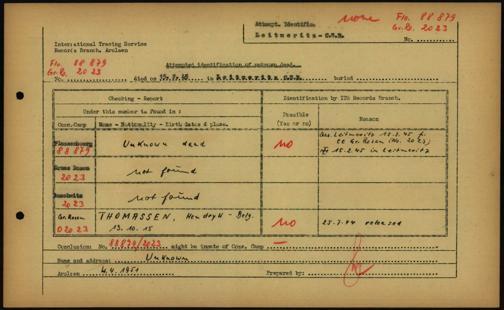 none
Flo. 88 879
Gr.Ro. 20 23
No.
Attempt. Identific.
Leitmeritz - C.S.R.
International Tracing Service
Records Branch, Arolsen
Attempted identification of unknown dead.
Flo. 88 879
Gr.Ro. 20 23
No. died on 15.2.45 in Leitmeritz C.S.R. buried
Checking - Report
Identification by ITS Records Branch.
Under this number is found in:
Possible
(Yes or no)
Reason
Conc.Camp
Name - Nationality - Birth dates & place.
Flossenburg
88 879
Unknown dead
no
Leitmeritz 15.2.45
Gr.Rosen (No. 20 23)
15.2.45 in Leitmeritz
Gross Rosen
20 23
not found
Auschwitz
20 23
not found
Gr.Rosen
0 20 23
THOMASSEN, Hendryk - Belg.
13.10.15
no
25.7.44 released
Conclusion: No. 88879/2023 might be inmate of Conc. Camp —
Name and address: Unknown
Arolsen 4.4.1951 Prepared by: